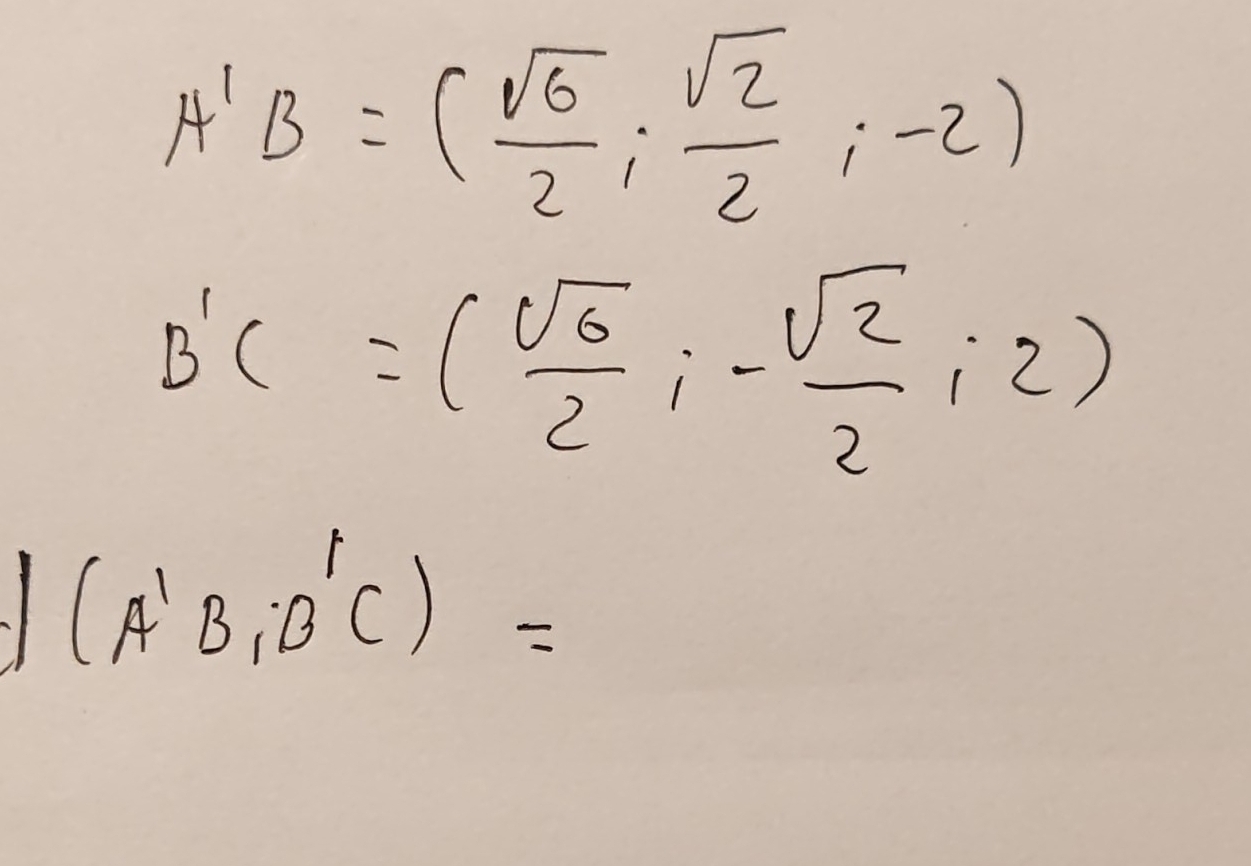 A'B = (√6/2 ; √2/2 ; -2)
B'C = (√6/2 ; -√2/2 ; 2)
d(A'B ; B'C) =